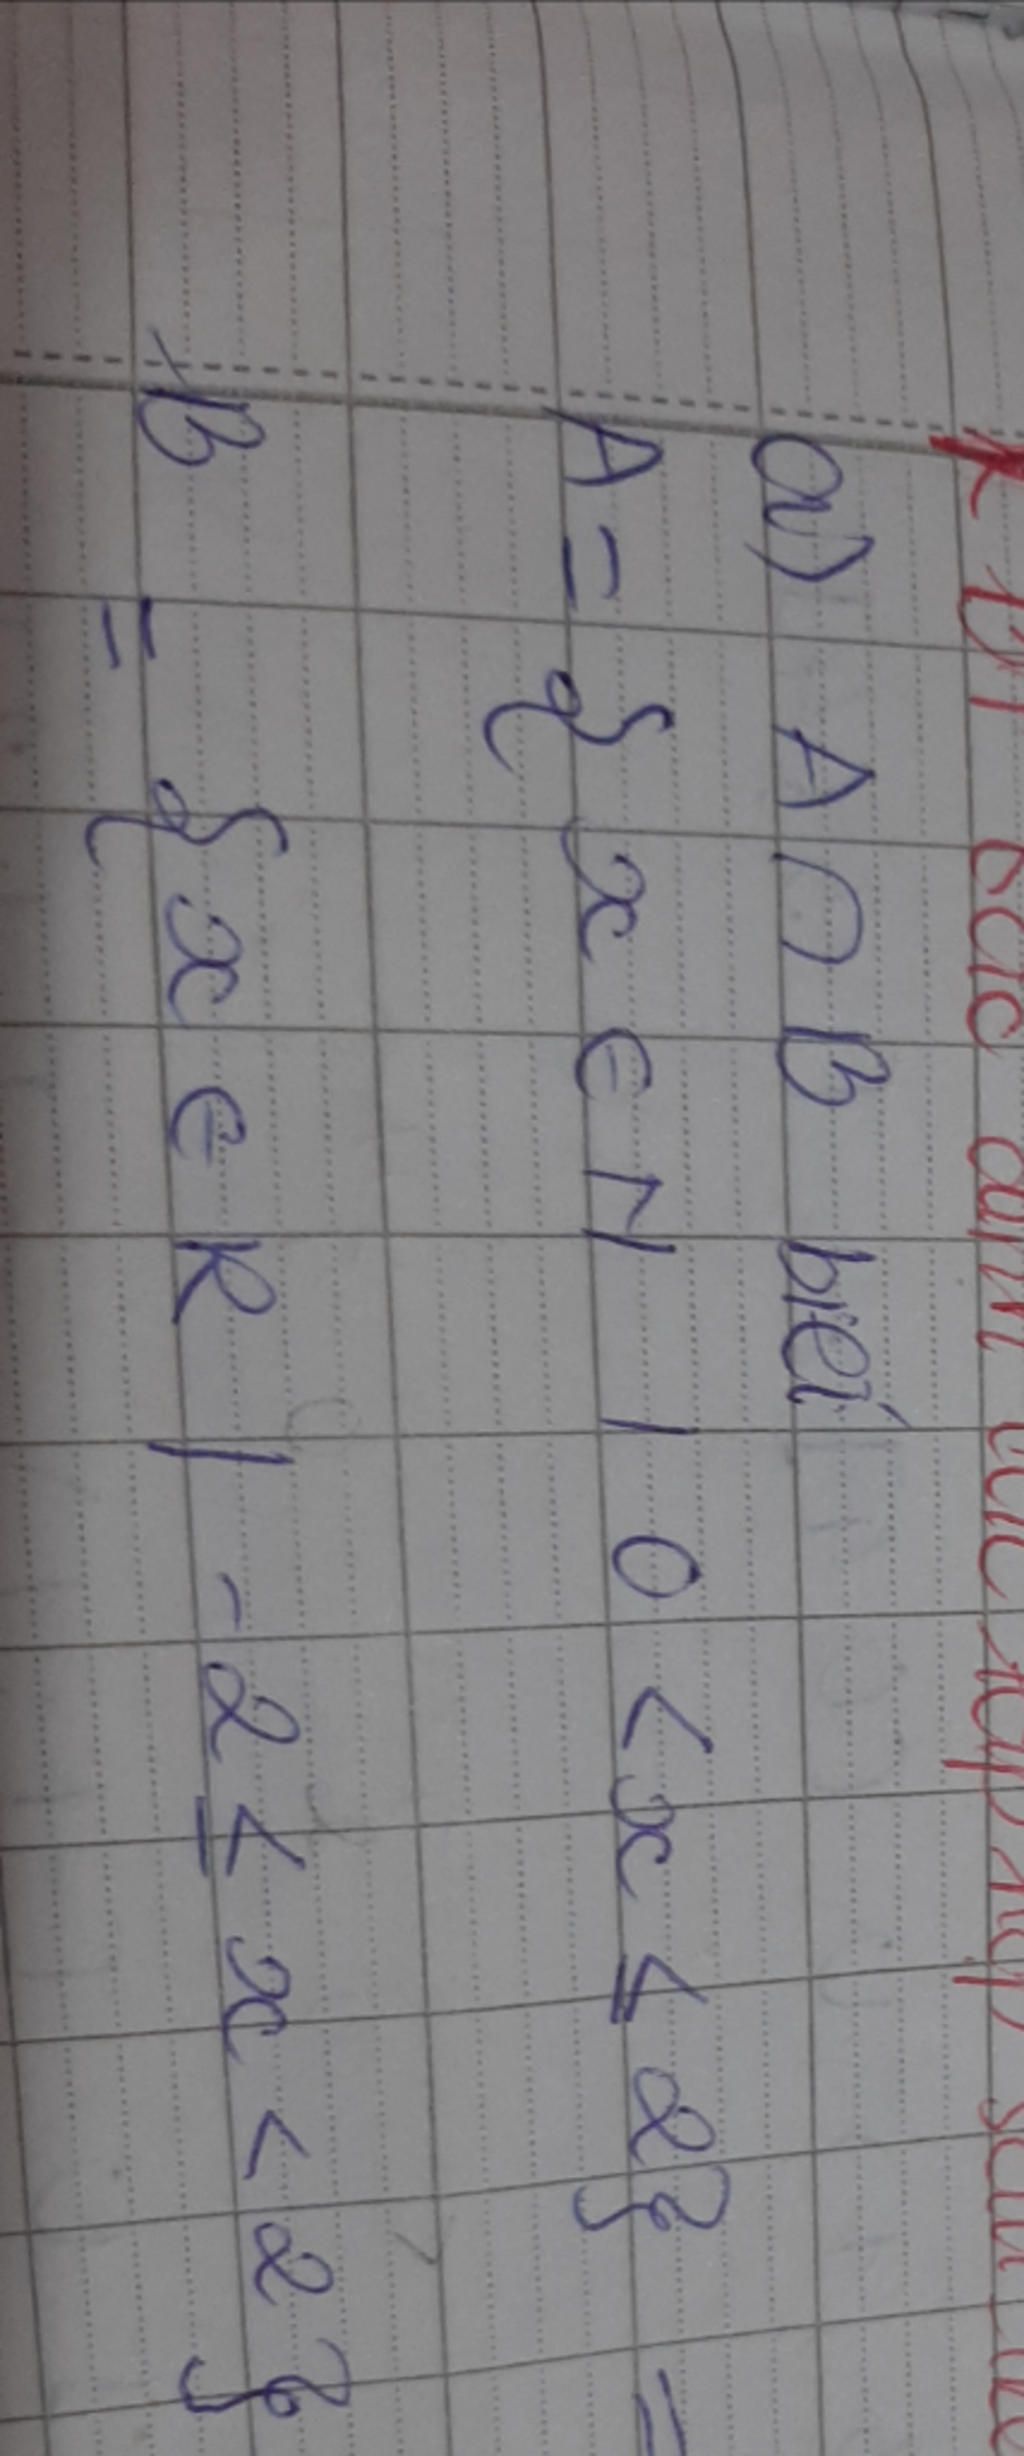 các tập hợp sau
a) A ∩ B biết
A = { x ∈ N | 0 < x ≤ 2 } =
B = { x ∈ R | -2 ≤ x < 2 }